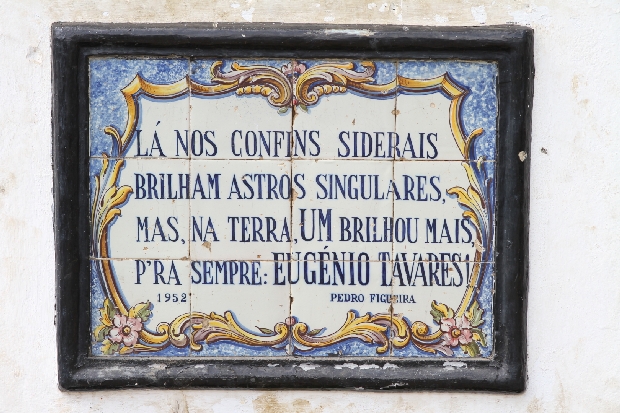 LÁ NOS CONFINS SIDERAIS
BRILHAM ASTROS SINGULARES,
MAS, NA TERRA, UM BRILHOU MAIS,
P'RA SEMPRE: EUGÉNIO TAVARES!
1952 PEDRO FIGUEIRA